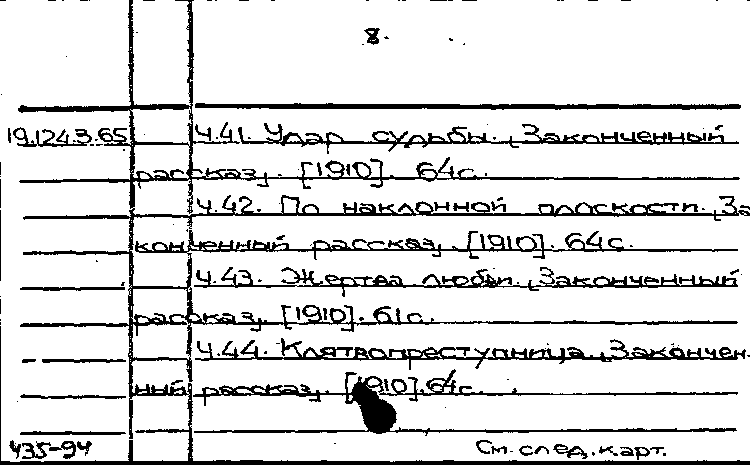 8.
19.124.3.65 Ч.41. Удар судьбы. [Законченный
рассказ]. [1910]. 64с.
Ч.42. По наклонной плоскости. [За
конченный рассказ]. [1910]. 64с.
Ч.43. Жертва любви. [Законченный
рассказ]. [1910]. 61с.
Ч.44. Клятвопреступница. [Закончен
ный рассказ]. [1910]. 64с.
435-94 См. след. карт.